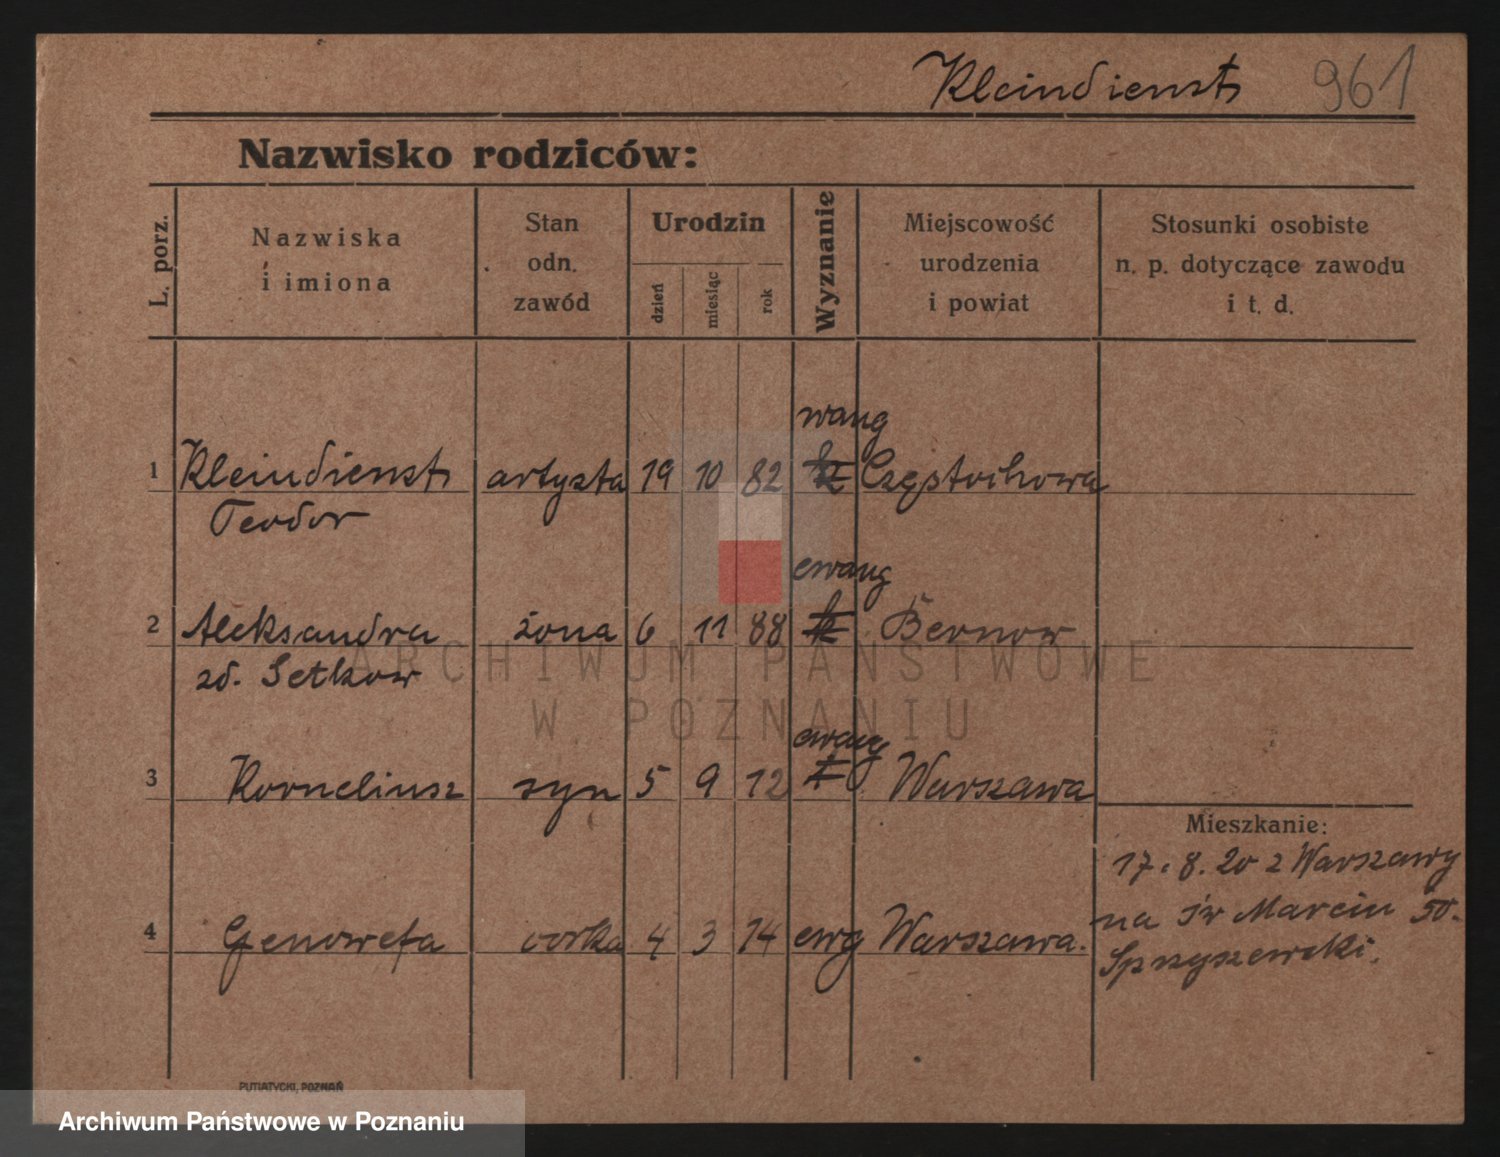 Kleindienst 961
Nazwisko rodziców:
L. porz.
Nazwiska
i imiona
Stan
odn.
zawód
Urodzin
dzień
miesiąc
rok
Wyznanie
Miejscowość
urodzenia
i powiat
Stosunki osobiste
n. p. dotyczące zawodu
i t. d.
ewang
1 Kleindienst artysta 19 10 82 k Częstochowa
Teodor
ewang
2 Aleksandra żona 6 11 88 k Bernow
zd. Setkow
ewang
3 Korneliusz syn 5 9 12 k Warszawa
Mieszkanie:
17. 8. 20 z Warszawy
na św Marcin 50.
4 Genowefa córka 4 3 14 ewg Warszawa.
Spszyszewski.
PUTIATYCKI, POZNAŃ
ARCHIWUM PAŃSTWOWE
W POZNANIU
Archiwum Państwowe w Poznaniu